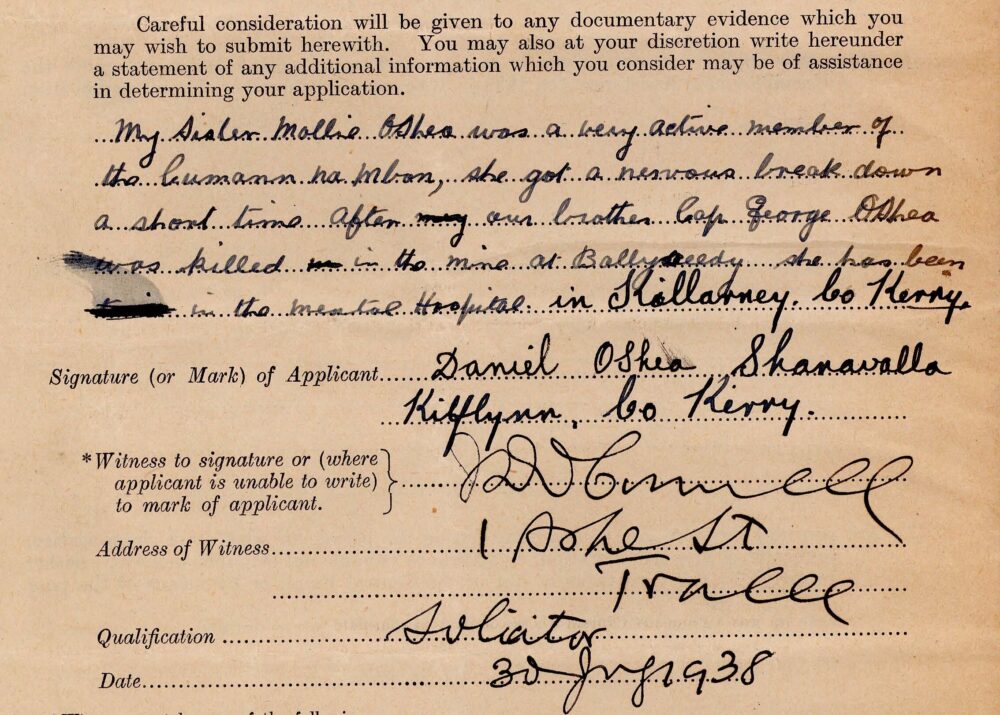 Careful consideration will be given to any documentary evidence which you
may wish to submit herewith. You may also at your discretion write hereunder
a statement of any additional information which you consider may be of assistance
in determining your application.
My Sister Mollie OShea was a very active member of
the Cumann na Mban, she got a nervous break down
a short time after our brother Cap George OShea
was killed in the mine at Ballyseedy she has been
in the Mental Hospital in Killarney. Co Kerry.
Signature (or Mark) of Applicant Daniel OShea Shanavalla
Kilflynn, Co Kerry.
*Witness to signature or (where
applicant is unable to write)
to mark of applicant.
Address of Witness 1 Ashe St
Tralee
Qualification Solicitor
Date 30 1938